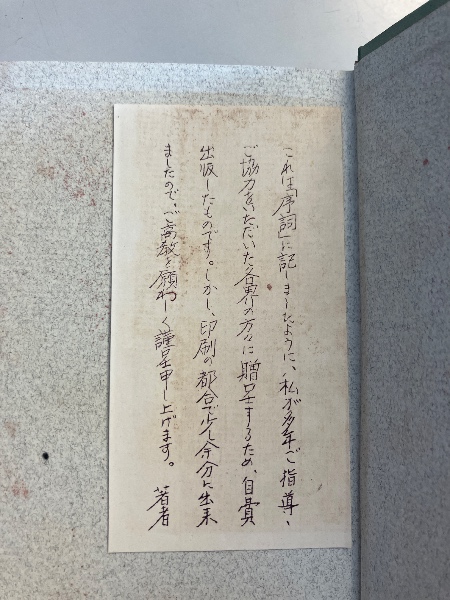 これは「序詞」に記しましたように、私が多年ご指導、
ご協力をいただいた各界の方々に贈呈するため、自費
出版したものです。しかし、印刷の都合で少し余分に出来
ましたので、ご高教を願わしく謹呈申し上げます。 著者